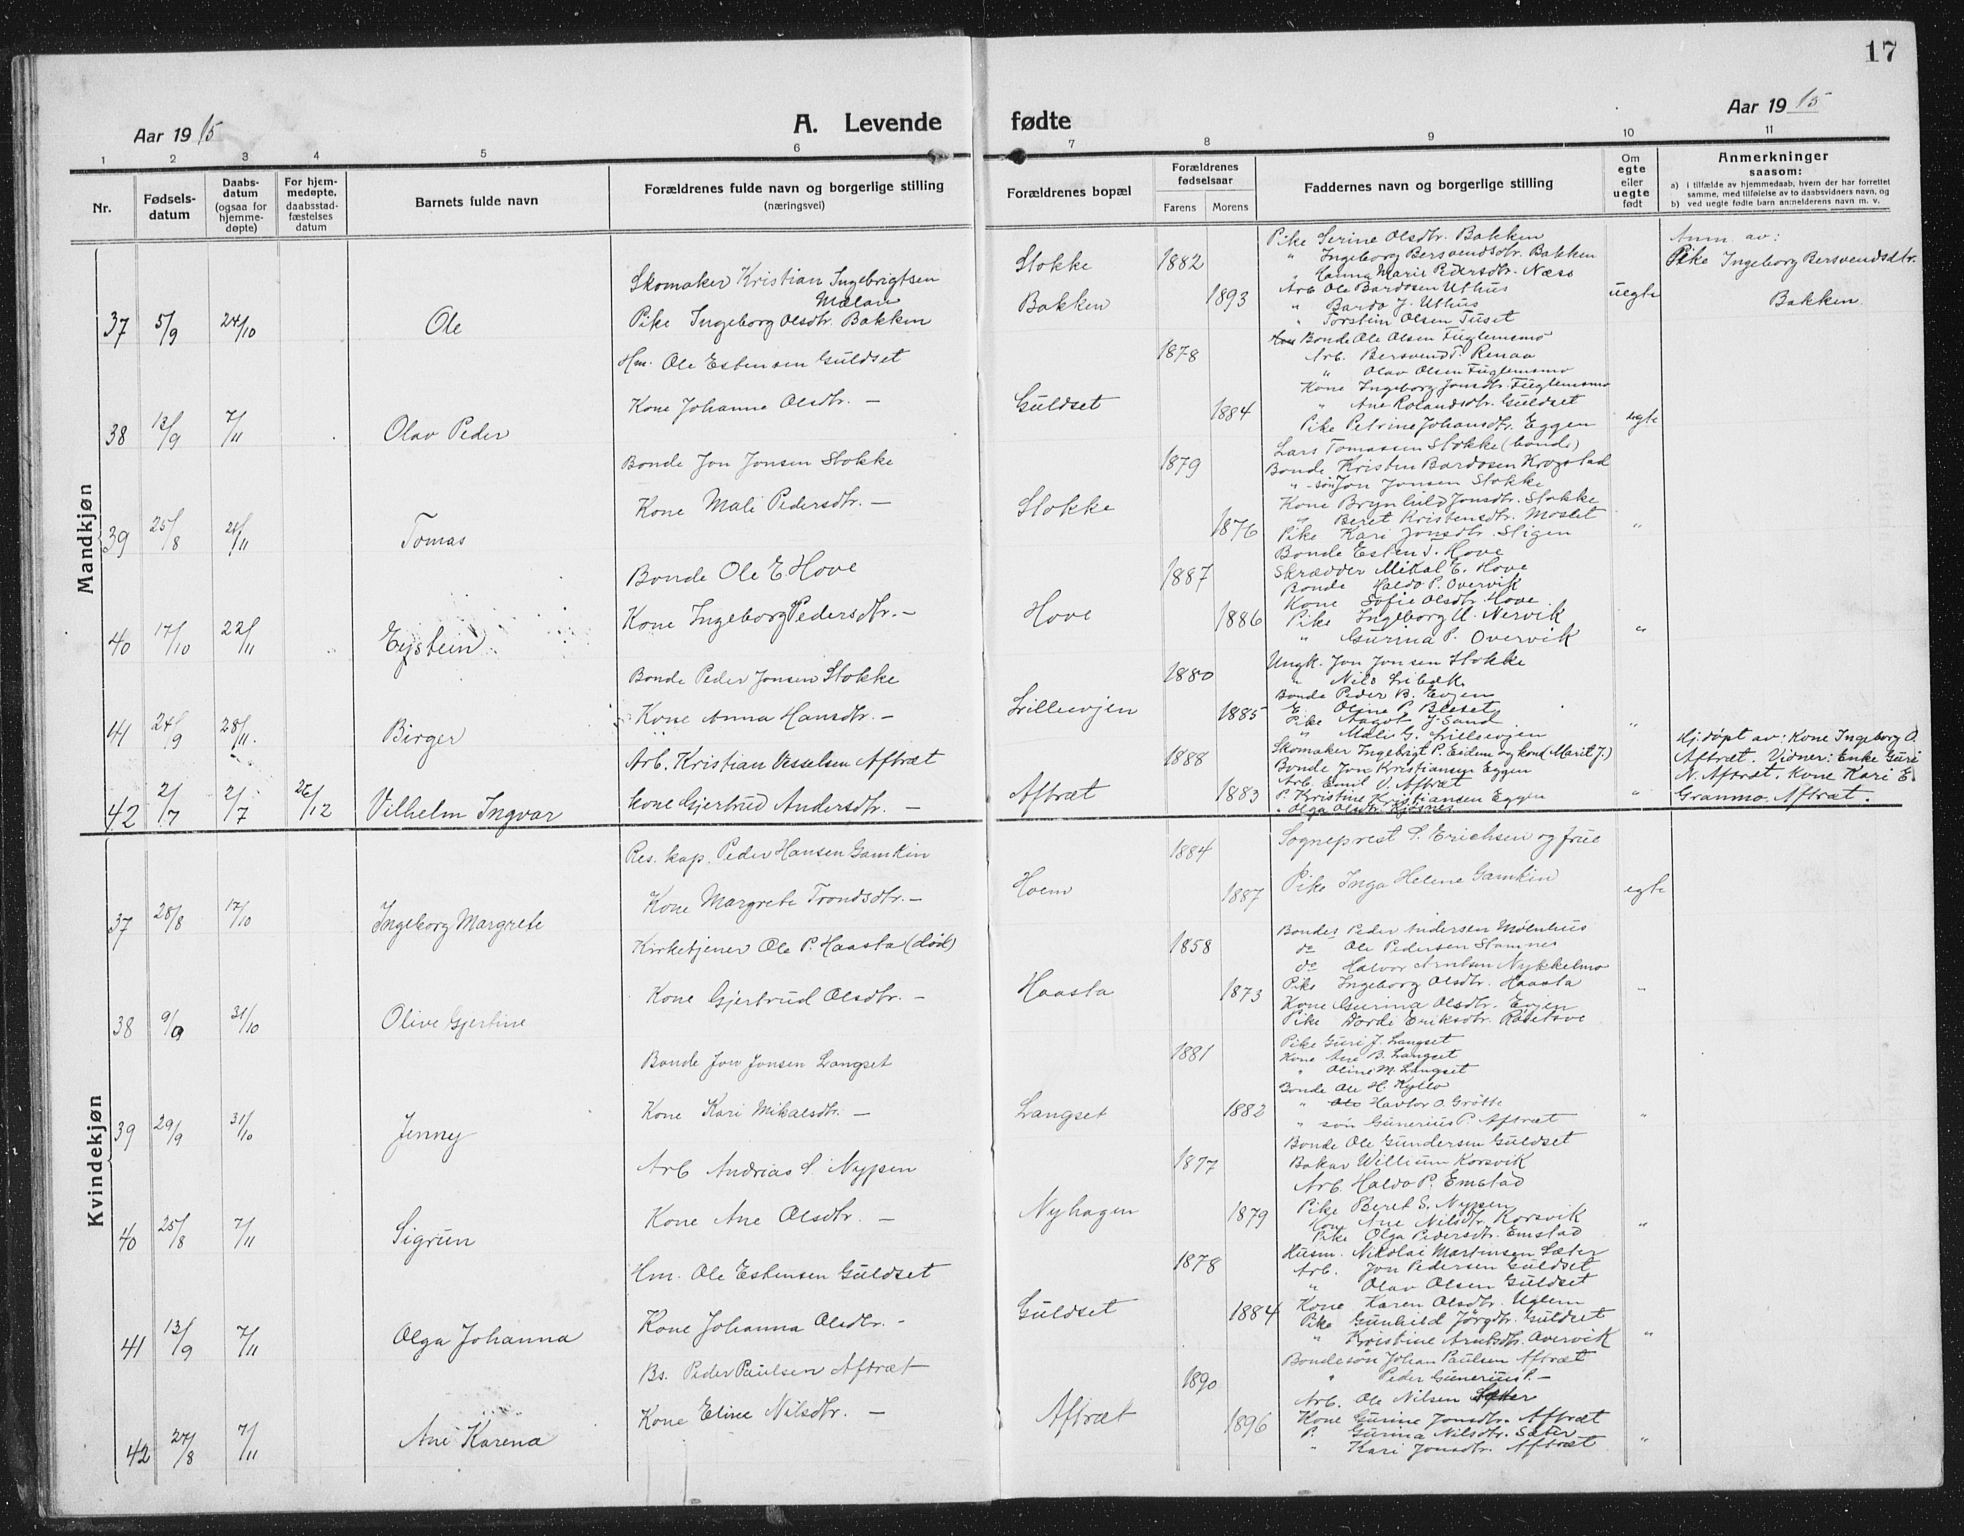 17
Aar 1915
A. Levende fødte
Aar 1915
1 2 3 4 5 6 7 8 9 10 11
Nr.
Fødsels-
datum
Daabs-
datum
(ogsaa for
hjemme-
døpte)
For hjem-
medøpte,
daabsstad-
fæstelses
datum
Barnets fulde navn
Forældrenes fulde navn og borgerlige stilling
(næringsvei)
Forældrenes bopæl
Forældrenes
fødselsaar
Farens Morens
Faddernes navn og borgerlige stilling
Om
egte
eller
uegte
født
Anmerkninger
saasom:
a) i tilfælde av hjemmedaab, hvem der har forrettet
samme, med tilføielse av to daabsvidners navn, og
b) ved uegte fødte barn anmelderens navn m. v.
Mandkjøn
37 5/9 24/10 Ole
Skomaker Kristian Ingebrigtsen
Mælan
Pike Ingeborg Olsdtr. Bakken
Stokke
Bakken
1882
1893
Pike Serine Olsdtr. Bakken
" Ingeborg Bersvendsdtr. Bakken
" Hanna Marie Pedersdtr. Næss
Arb Ole Bardosen Uthus
" Bardo J. Uthus
" Torstein Olsen Tuset
uegte
Anm. av:
Pike Ingeborg Bersvendsdtr.
Bakken
38 13/9 7/11 Olav Peder
Hm. Ole Estensen Guldset
Kone Johanne Olsdtr. —
Guldset
1878
1884
Bonde Ole Olsen Fuglemsmo
Arb. Bersvend T. Renaa
" Olav Olsen Fuglemsmo
Kone Ingeborg Jonsdtr. Fuglemsmo
" Ane Rolandsdtr. Guldset
Pike Petrine Johansdtr. Eggen
egte
39 25/8 21/11 Tomas
Bonde Jon Jonsen Stokke
Kone Mali Pedersdtr. —
Stokke
1879
1876
Lars Tomassen Stokke (bonde)
Bonde Kristen Bardosen Krogstad
" søn Jon Jonsen Stokke
Kone Brynhild Jonsdtr. Stokke
" Beret Kristensdtr. Moslet
Pike Kari Jonsdtr. Stigen
"
40 17/10 22/11 Eystein
Bonde Ole E Hove
Kone Ingeborg Pedersdtr. —
Hove
1887
1886
Bonde Esten T. Hove
Skrædder Mikal E. Hove
Bonde Haldo P. Overvik
Kone Sofie Olsdtr. Hove
Pike Ingeborg U. Nervik
" Gurina P. Overvik
"
41 24/9 28/11 Birger
Bonde Peder Jonsen Stokke
Kone Anna Hansdtr. —
Lillevjen
1880
1885
Ungk. Jon Jonsen Stokke
" Nils Libæk
Bonde Peder B. Evjen
E. Oline P. Bleset
Pike Aagot J. Sand
" Mali G. Lillevjen
"
42 2/7 2/7 26/12 Vilhelm Ingvar
Arb. Kristian Vesselsen Aftræt
Kone Gjertrud Andersdtr. —
Aftræt
1888
1883
Skomaker Ingebrigt P. Eidem og kone (Marit J.)
Bonde Jon Kristiansen Eggen
Arb. Emil O. Aftræt
P. Kristine Kristiansen Eggen
" Olga Olsdtr. Kjøsnes
"
Hj. døpt av: Kone Ingeborg O.
Aftræt. Vidner: Enke Guri
N. Aftræt, Kone Kari E
Granmo, Aftræt.
Kvindekjøn
37 28/8 17/10 Ingeborg Margrete
Res. kap. Peder Hansen Gamkin
Kone Margrete Trondsdtr. —
Hoem
1884
1887
Sogneprest S. Erichsen og frue
Pike Inga Helene Gamkin
egte
38 9/9 31/10 Olive Gjertine
Kirketjener Ole P. Haasta (død)
Kone Gjertrud Olsdtr. —
Haasta
1858
1873
Bondes Peder Andersen Mølnhus
do Ole Pedersen Stamnes
do Halvor Arntsen Nykkelmo
Pike Ingeborg Olsdtr. Haasta
Kone Gurina Olsdtr. Evjen
Pike Dordi Eriksdtr. Røsetsve
"
39 29/9 31/10 Jenny
Bonde Jon Jonsen Langset
Kone Kari Mikalsdtr. —
Langset
1881
1882
Pike Guri J. Langset
Kone Ane B. Langset
" Oline M. Langset
Bonde Ole H. Kyllo
" Ole Havtor O. Grøtte
" søn Gunerius P. Aftræt
"
40 25/8 7/11 Sigrun
Arb Andrias S. Nypen
Kone Ane Olsdtr. —
Nyhagen
1877
1879
Bonde Ole Gundersen Guldset
Baker Willium Korsvik
Arb. Haldo P. Emstad
Pike Beret S. Nypen
Kone Ane Nilsdtr. Korsvik
Pike Olga Pedersdtr. Emstad
"
41 13/9 7/11 Olga Johanna
Hm. Ole Estensen Guldset
Kone Johanna Olsdtr. —
Guldset
1878
1884
Husm. Nikolai Martinsen Sæter
Arb. Jon Pedersen Guldset
" Olav Olsen Guldset
Kone Karen Olsdtr. Uglem
Pike Gunhild Jørgdtr. Guldset
" Kristine Arntsdtr. Overvik
"
42 27/8 7/11 Ane Karena
Bs. Peder Paulsen Aftræt
Kone Eline Nilsdtr. —
Aftræt
1890
1896
Bondesøn Johan Paulsen Aftræt
" Peder Gunerius P. —
Arb. Ole Nilsen Sæter
Kone Gurine Jonsdtr. Aftræt
P. Gurina Nilsdtr. Sæter
" Kari Jonsdtr. Aftræt
"